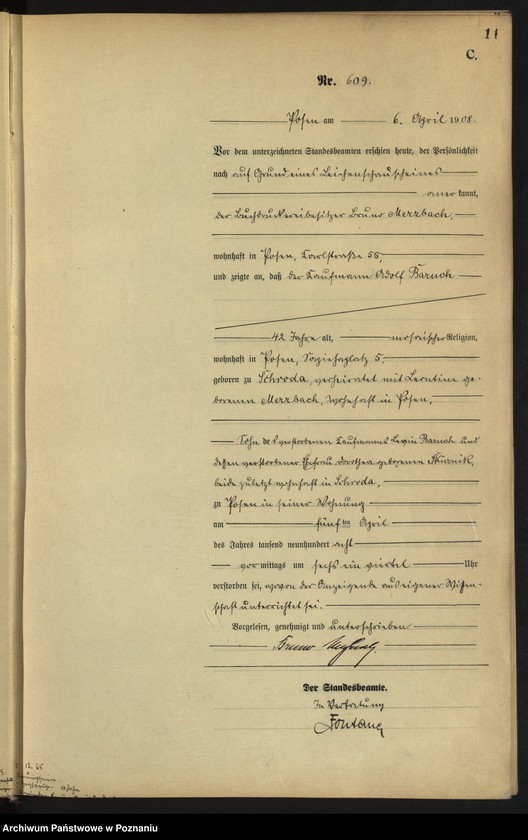 11
C.
Nr. 609.
Posen am 6. April 1908.
Vor dem unterzeichneten Standesbeamten erschien heute, der Persönlichkeit
nach auf Grund eines Leichenschauscheines
anerkannt,
der Buchdruckereibesitzer Bruno Merzbach,
wohnhaft in Posen, Carlstraße
und zeigte an, daß der Kaufmann Adolf Baruch
42 Jahre alt, mosaischer Religion,
wohnhaft in Posen, Sapiehaplatz 5,
geboren zu Schroda, verheiratet mit Leontine ge-
borenen Merzbach, wohnhaft in Posen,
Sohn des verstorbenen Kaufmanns Levin Baruch und
deßen verstorbener Ehefrau Dorothea geborenen
beide zuletzt wohnhaft in Schroda,
zu Posen in seiner Wohnung
am fünften April
des Jahres tausend neunhundert acht
vormittags um sechs ein viertel Uhr
verstorben sei, wovon der Anzeigende aus eigener Wißen-
schaft unterrichtet sei.
Vorgelesen, genehmigt und unterschrieben
Bruno Merzbach.
Der Standesbeamte.
In Vertretung
Fontane
12 65
Archiwum Państwowe w Poznaniu